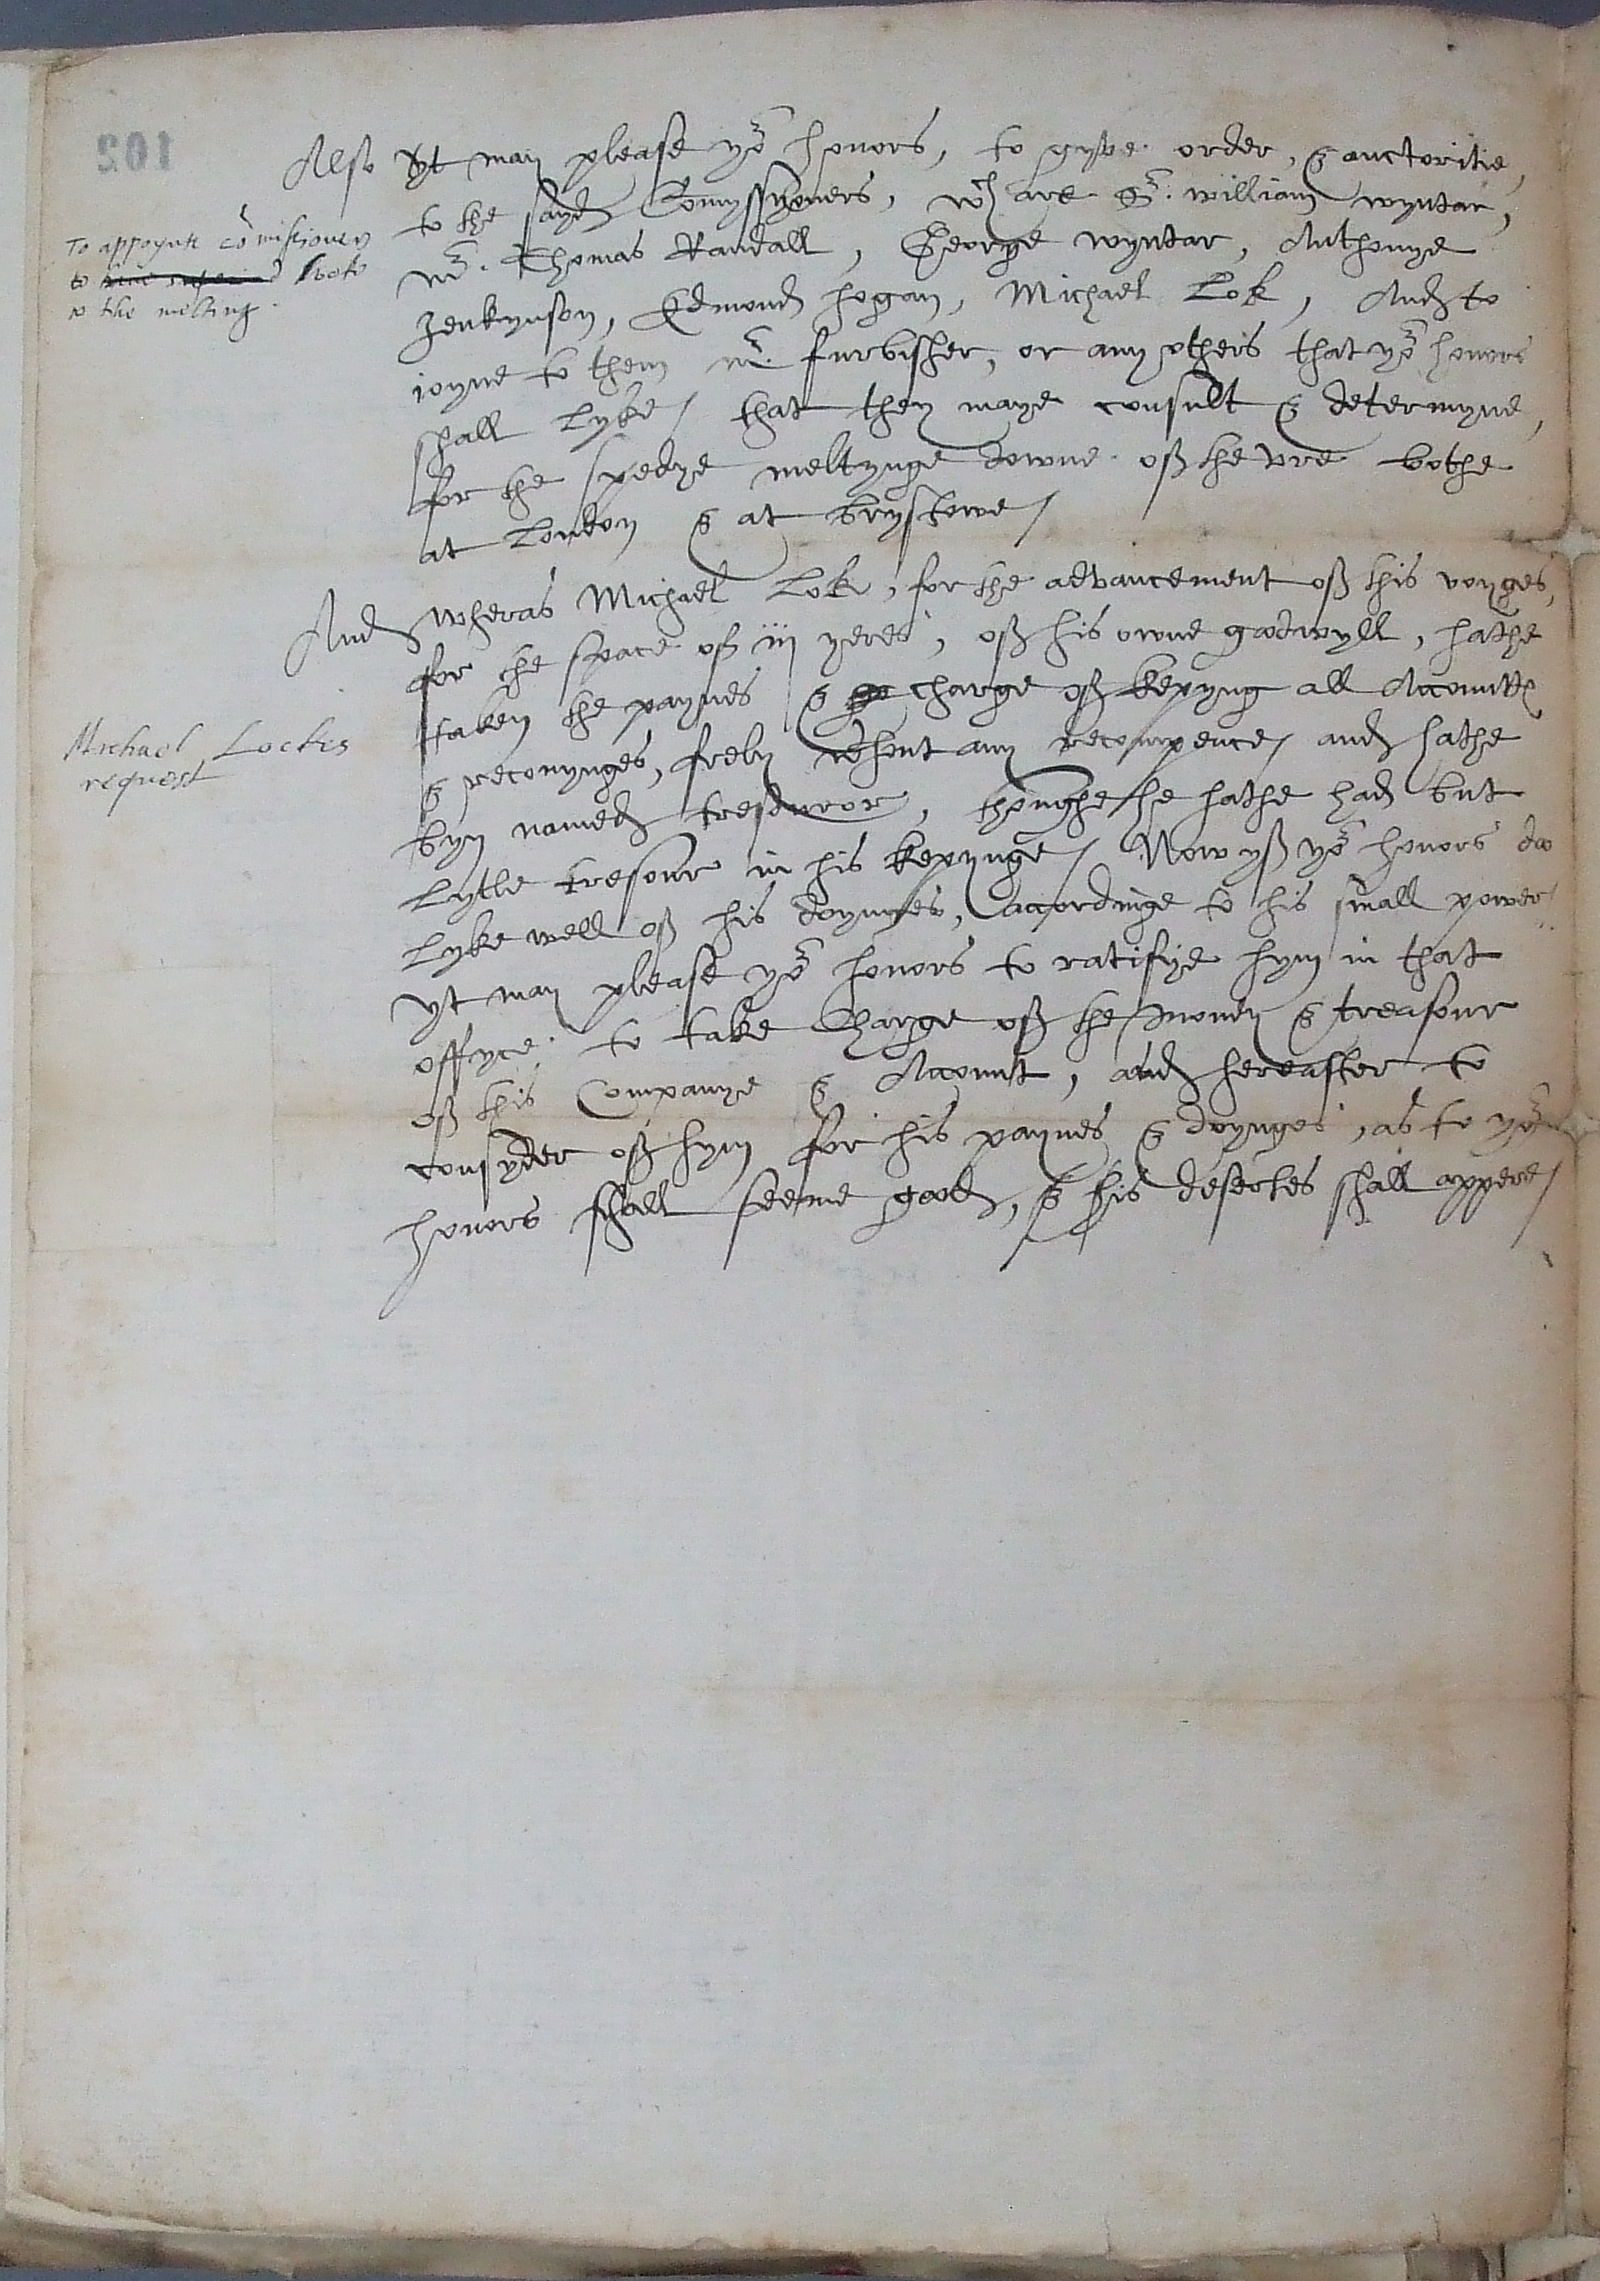 Also yt may please yor honors, to gyve order, & auctoritie,
to the sayd Comyssyoners, wch are Sr. William wyntar,
mr. Thomas Randall, George wyntar, Anthonye
Jenkynson, Edmond hogan, Michael Lok, And to
ioyne to them mr. furbisher, or any others that yor honors
shall Lyke / that they maye consult & determyne,
for the spedye meltynge downe of the vre bothe
at London & at brystowe /
To appoynte comissioners
to looke
to the melting.
And wheras Michael Lok, for the advancement of this voyages,
for the space of iij yeres, of his owne goodwyll, hathe
taken the paynes & charge of kepyng all Accountes
& reconynges, frely wthout any recompence / and hathe
byn named tresouror, thoughe he hathe had but
Lytle tresour in his kepynge / Now yf yor honors doo
Lyke well of his doynges, accordinge to his small power
yt may please yor honors to ratifye hym in that
offyce. to take Charge of the money & treasour
of this Companye & Account, and hereafter to
consyder of hym for his paynes & doynges, as to yor
honors shall seeme good, & his desertes shall appere /
Michael Lockes
request
102